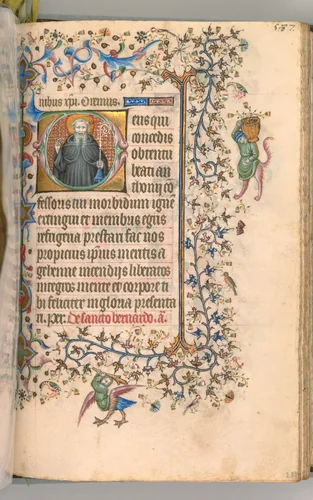 nibus xpi. Oremus.
Deus qui
concedis
obtentu
beati an
thonii co
fessoris tui morbidum igne
extingui et membris egris
refrigeria prestari fac nos
propicius ipsius meritis a
gehenne incendijs liberatos
integros mente et corpore ti
bi feliciter in gloria presenta
ri. per. De sancto bernardo. a.